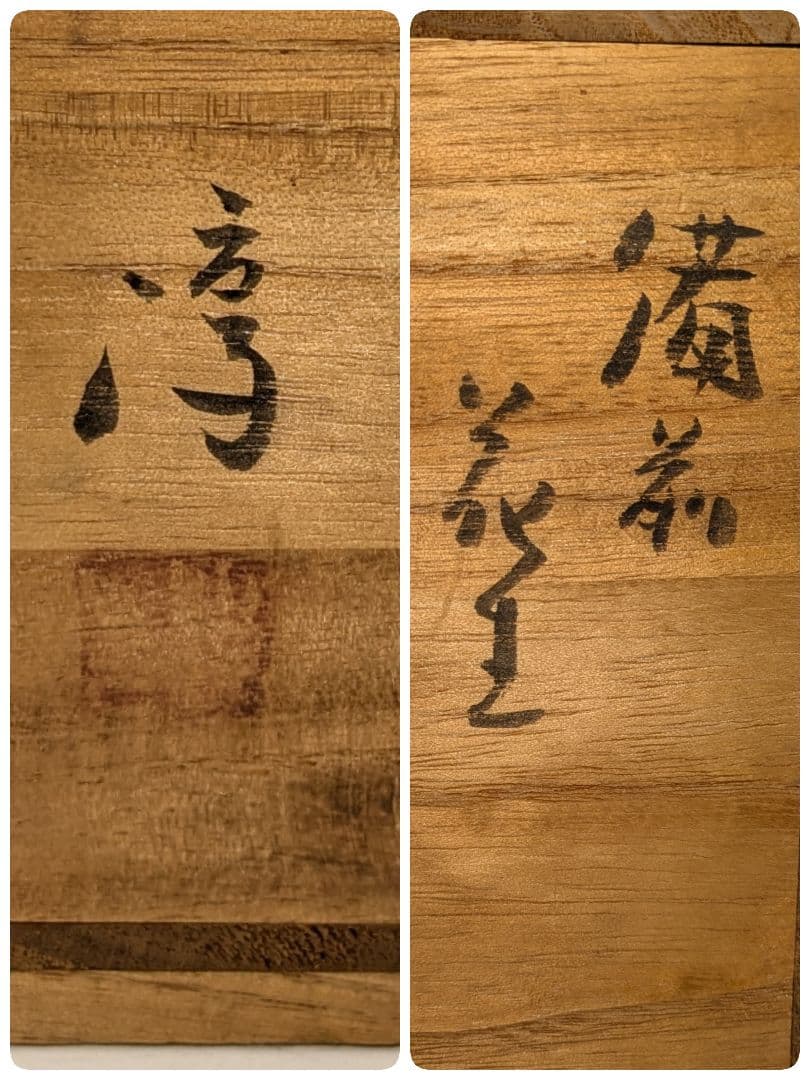 淳
備前
花生